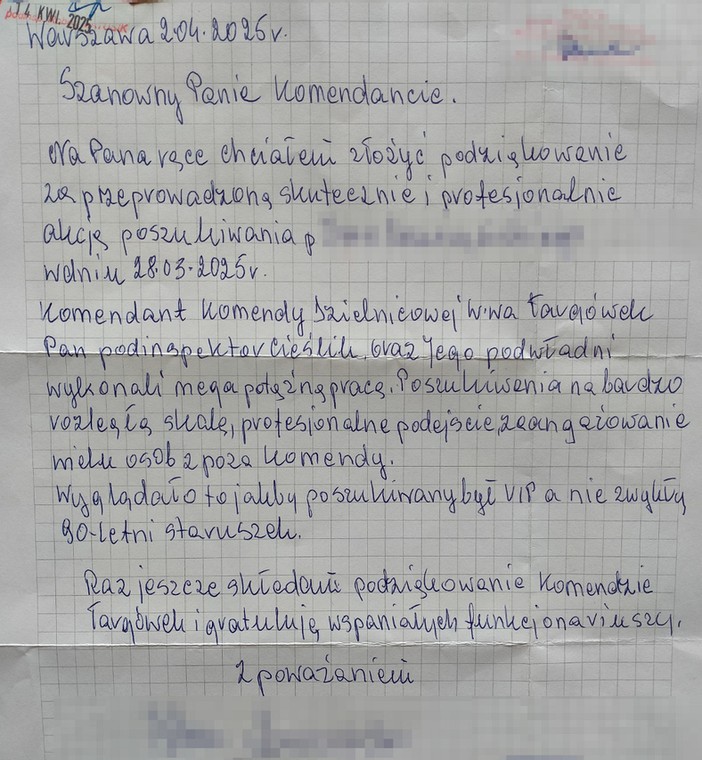 14 KWI. 2025
Warszawa 2.04.2025r.
Szanowny Panie Komendancie.
Na Pana ręce chciałem złożyć podziękowanie
za przeprowadzoną skutecznie i profesjonalnie
akcję poszukiwania p
w dniu 28.03.2025r.
Komendant Komendy Dzielnicowej W-wa Targówek
Pan podinspektor Cieślik, oraz Jego podwładni
wykonali mega potężną pracę. Poszukiwania na bardzo
rozległą skalę, profesjonalne podejście, zaangażowanie
wielu osób z poza Komendy.
Wyglądało to jakby poszukiwany był VIP a nie zwykły
90-letni staruszek.
Raz jeszcze składam podziękowanie Komendzie
Targówek i gratuluję wspaniałych funkcjonariuszy.
Z poważaniem